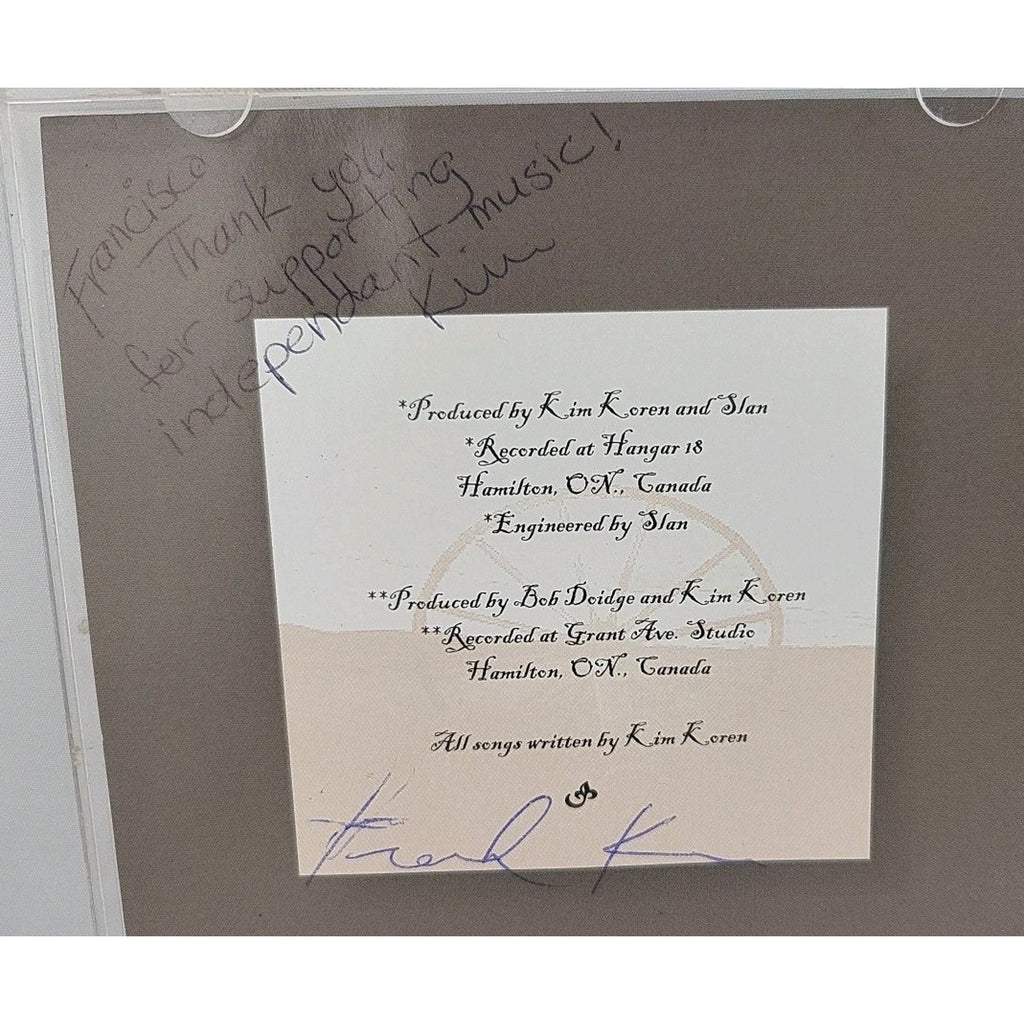 Francisco
Thank you
for supporting
independant music!
Kim
*Produced by Kim Koren and Slan
*Recorded at Hangar 18
Hamilton, ON., Canada
*Engineered by Slan
**Produced by Bob Doidge and Kim Koren
**Recorded at Grant Ave. Studio
Hamilton, ON., Canada
All songs written by Kim Koren